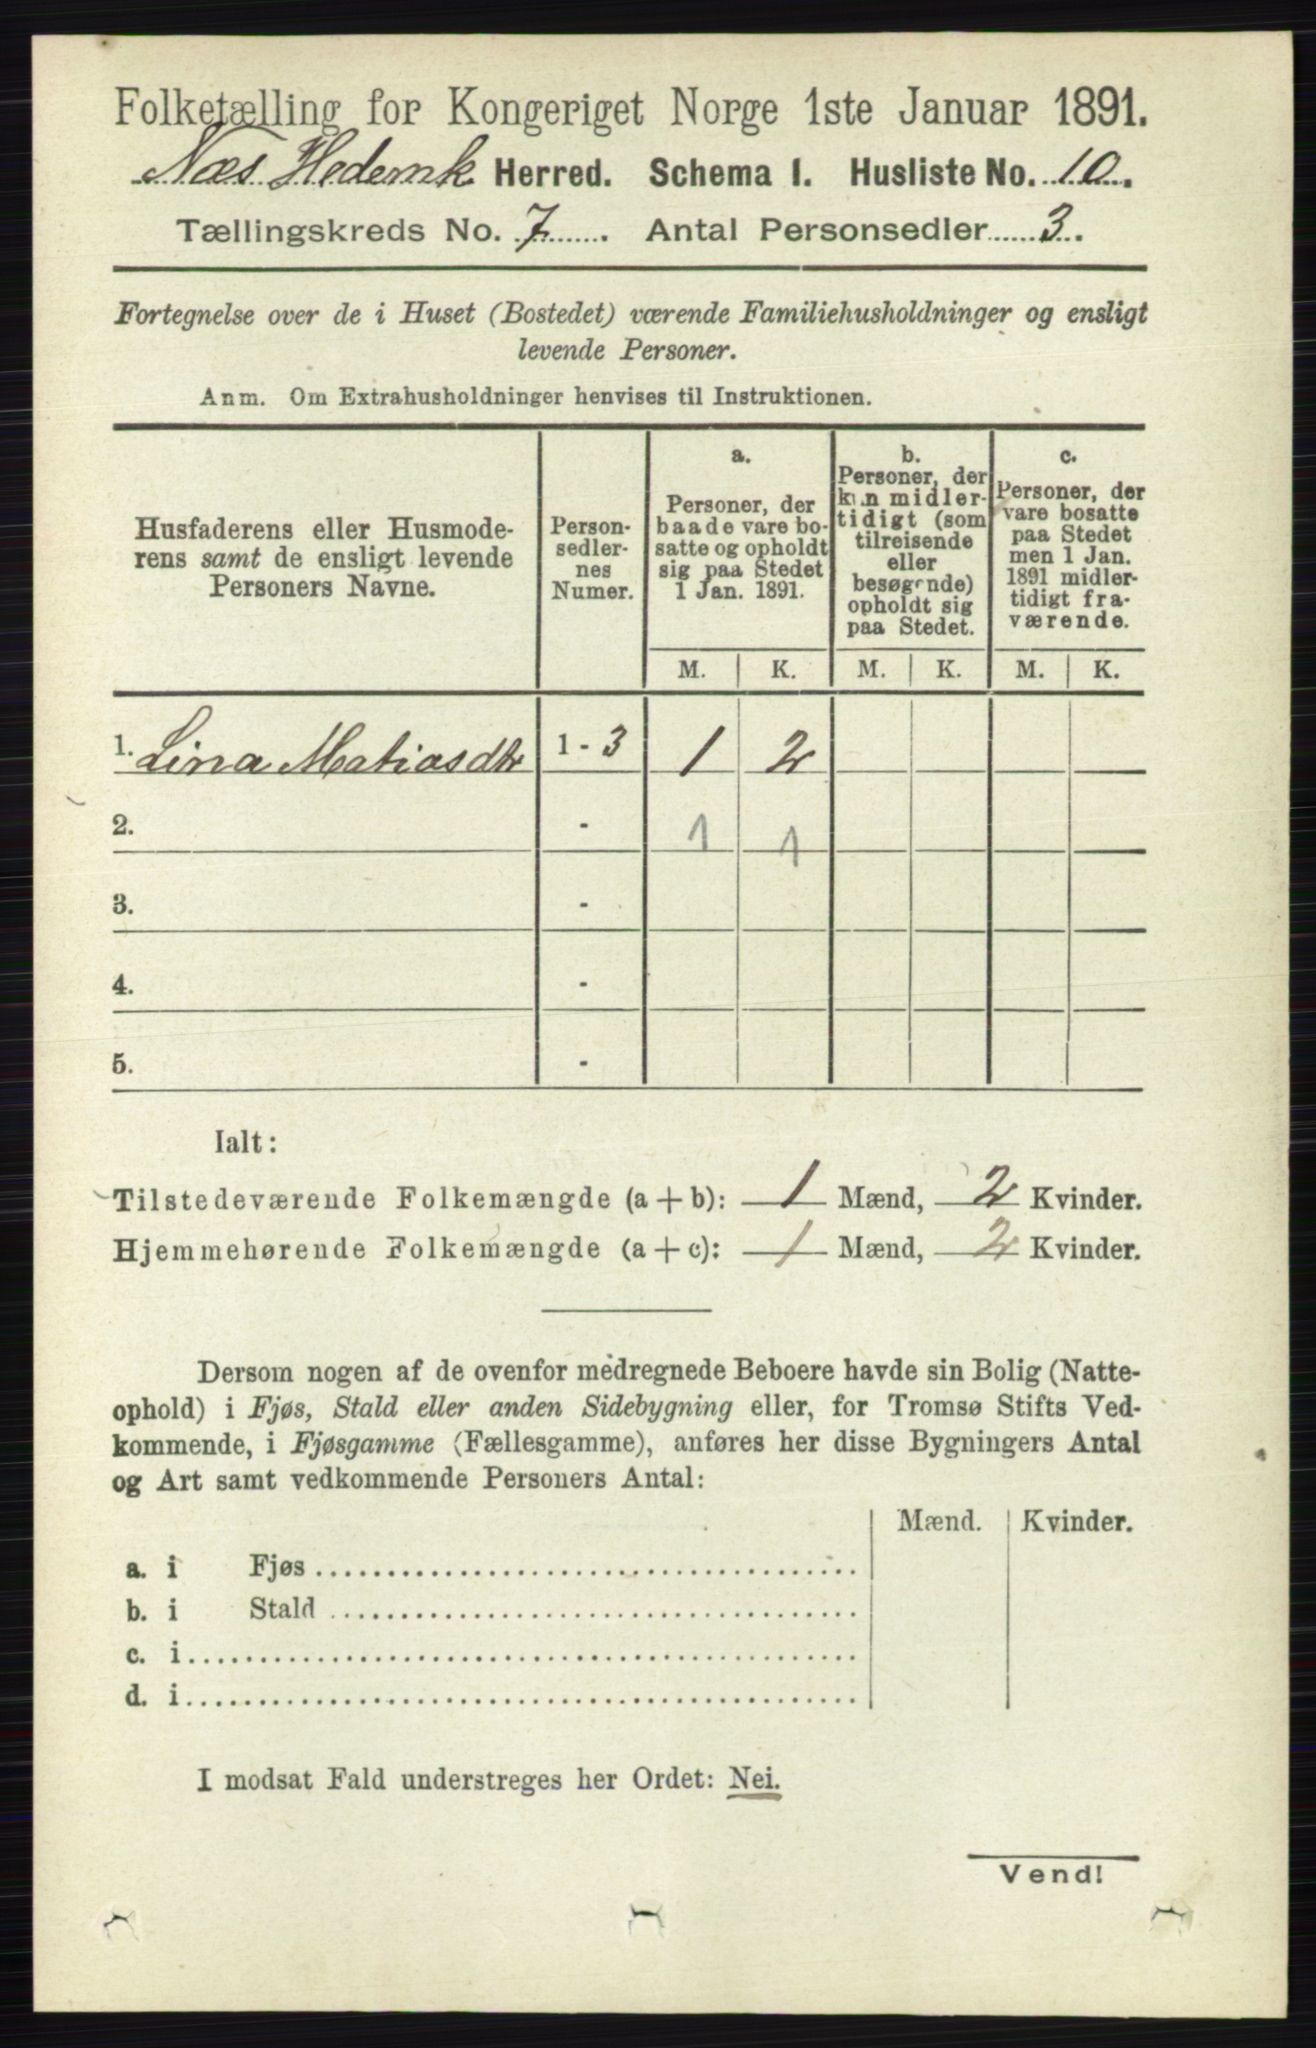 Folketælling for Kongeriget Norge 1ste Januar 1891.
Næs Hedemk Herred. Schema I. Husliste No. 10.
Tællingskreds No. 7. Antal Personsedler 3.
Fortegnelse over de i Huset (Bostedet) værende Familiehusholdninger og ensligt
levende Personer.
Anm. Om Extrahusholdninger henvises til Instruktionen.
Husfaderens eller Husmode-
rens samt de ensligt levende
Personers Navne.
Person-
sedler-
nes
Numer.
a.
Personer, der
baade vare bo-
satte og opholdt
sig paa Stedet
1 Jan. 1891.
b.
Personer, der
kun midler-
tidigt (som
tilreisende
eller
besøgende)
opholdt sig
paa Stedet.
c.
Personer, der
vare bosatte
paa Stedet
men 1 Jan.
1891 midler-
tidigt fra-
værende.
M. K. M. K. M. K.
1. Lina Matiasdtr 1 - 3 1 2
2. - 1 1
3. -
4. -
5. -
Ialt:
Tilstedeværende Folkemængde (a + b): 1 Mænd, 2 Kvinder.
Hjemmehørende Folkemængde (a + c): 1 Mænd, 2 Kvinder.
Dersom nogen af de ovenfor medregnede Beboere havde sin Bolig (Natte-
ophold) i Fjøs, Stald eller anden Sidebygning eller, for Tromsø Stifts Ved-
kommende, i Fjøsgamme (Fællesgamme), anføres her disse Bygningers Antal
og Art samt vedkommende Personers Antal:
Mænd. Kvinder.
a. i Fjøs
b. i Stald
c. i
d. i
I modsat Fald understreges her Ordet: Nei.
Vend!